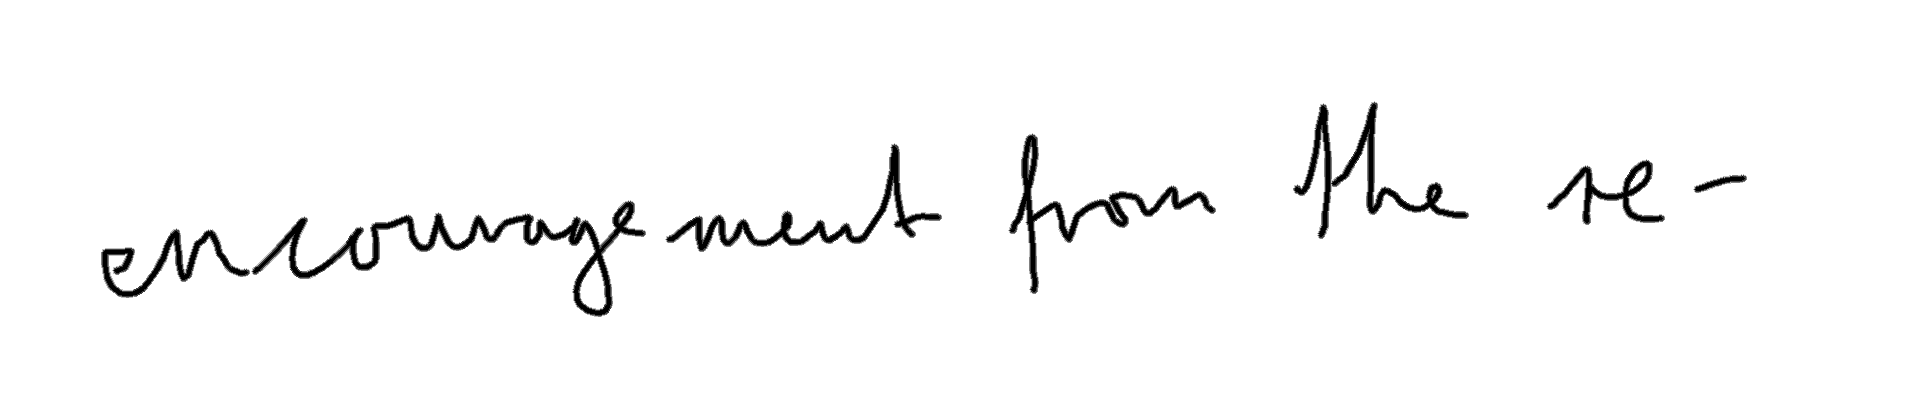 encouragement from the re-